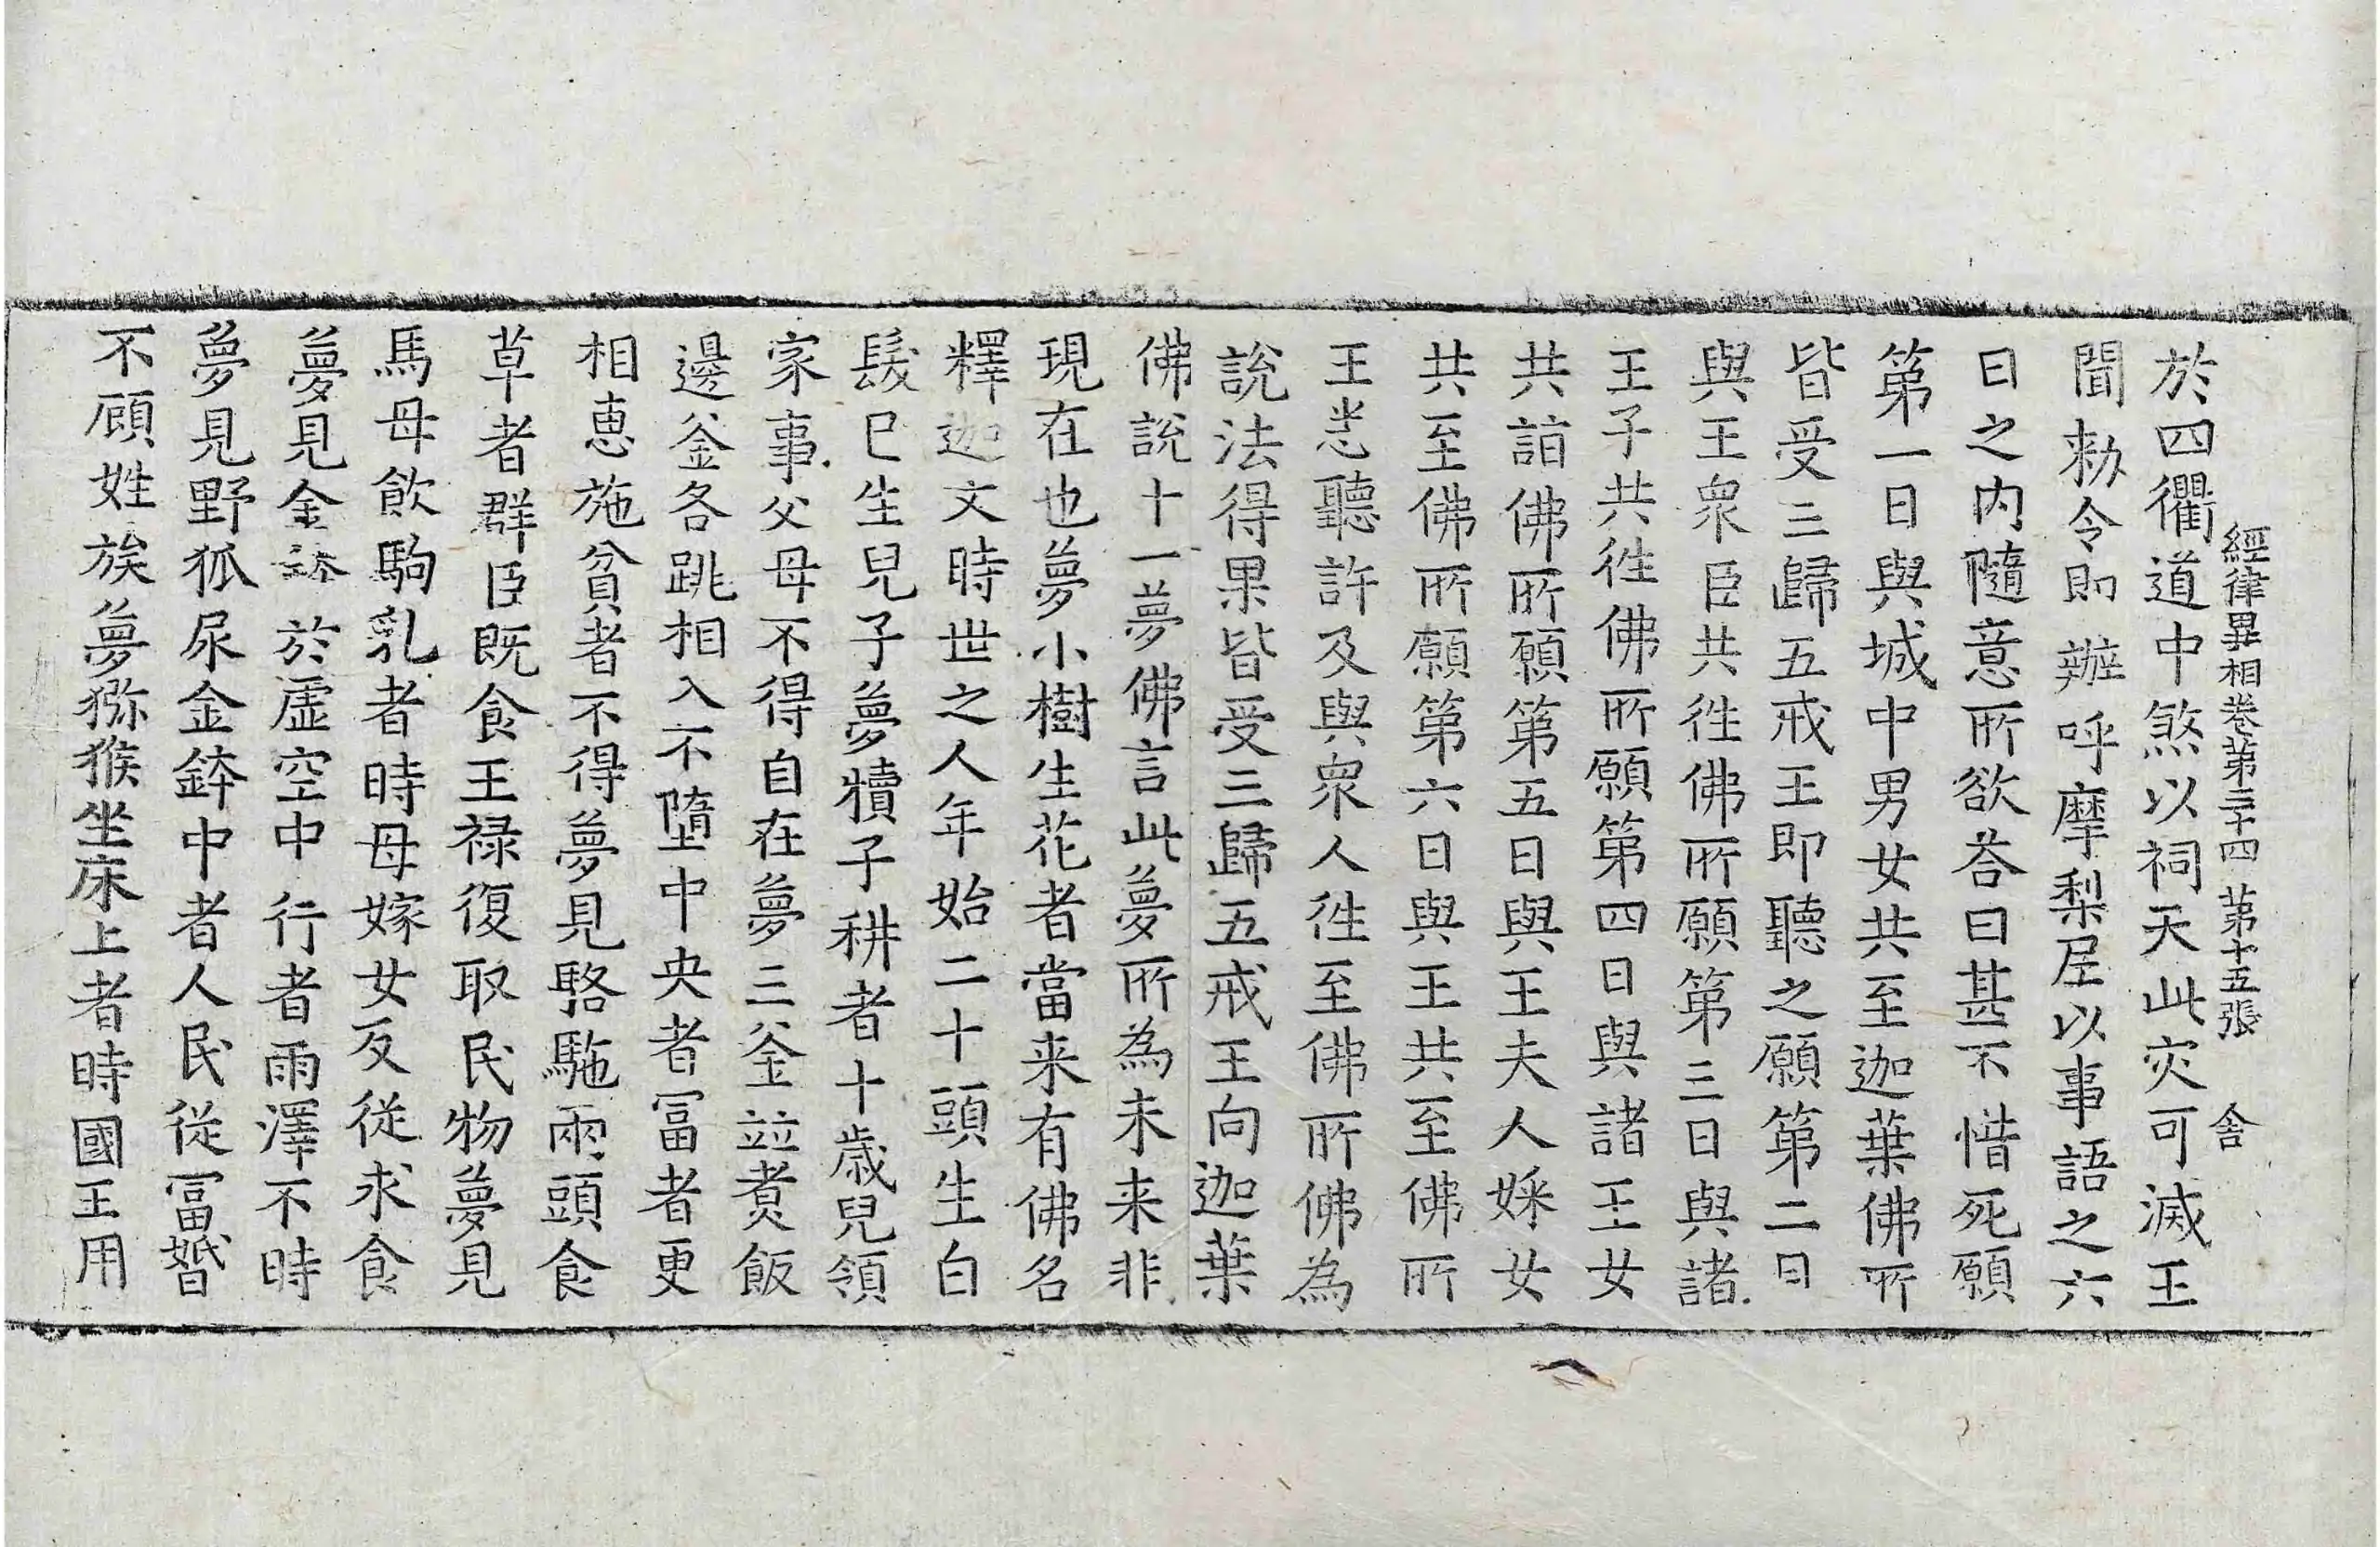 經律異相卷第三十四 第十五張 舎
於四衢道中煞以祠天此灾可滅王
聞勑令即辦呼摩梨𡰱以事語之六
日之内隨意所欲荅曰甚不惜死願
第一日與城中男女共至迦葉佛所
皆受三歸五戒王即聽之願第二日
與王衆臣共徃佛所願第三日與諸
王子共徃佛所願第四日與諸王女
共詣佛所願第五日與王夫人婇女
共至佛所願第六日與王共至佛所
王悉聽許及與衆人徃至佛所佛為
說法得果皆受三歸五戒王向迦葉
佛說十一夢佛言此夢所為未来非
現在也夢小樹生花者當来有佛名
釋迦文時世之人年始二十頭生白
髮巳生兒子夢犢子耕者十歳兒領
家事父母不得自在夢三釜竝煑飯
邊釜各跳相入不墮中央者冨者更
相恵施貧者不得夢見駱駞兩頭食
草者群臣既食王禄復取民物夢見
馬母飲駒乳者時母嫁女反從求食
夢見金鉢於虛空中行者雨澤不時
夢見野狐尿金鉢中者人民從冨婚
不顧姓族夢猕猴坐床上者時國王用